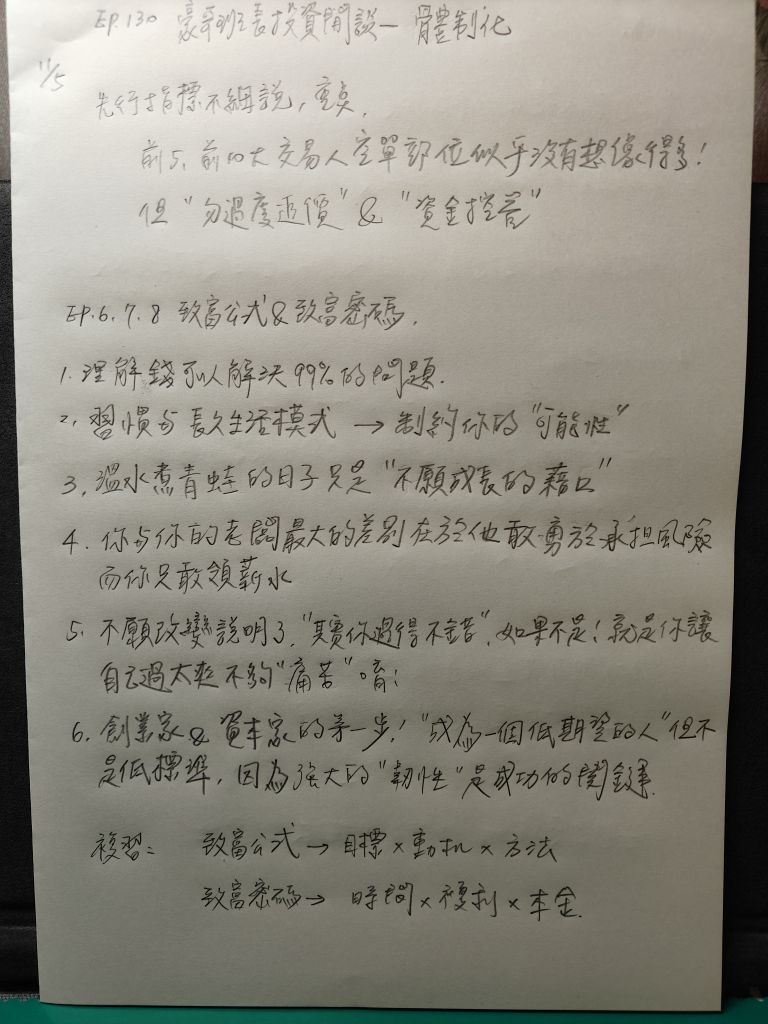 EP.130 豪哥班長投資閒談—體制化
11/5
先行指標不細說,重點,
前5、前10大交易人空單部位似乎沒有想像得多!
但"勿過度追價"&"資金控管"
EP.6.7.8 致富公式&致富密碼.
1. 理解錢可以解決99%的問題.
2. 習慣与長久生活模式 → 制約你的"可能性"
3. 溫水煮青蛙的日子只是"不願成長的藉口"
4. 你与你的老闆最大的差別在於他敢勇於承担風險
而你只敢領薪水
5. 不願改變說明了,"其實你過得不錯",如果不是!就是你讓
自己過太爽不夠"痛苦"唷!
6. 創業家&資本家的第一步!"成為一個低期望的人"但不
是低標準,因為強大的"韌性"是成功的關鍵.
複習: 致富公式→目標×動机×方法
致富密碼→時間×複利×本金.